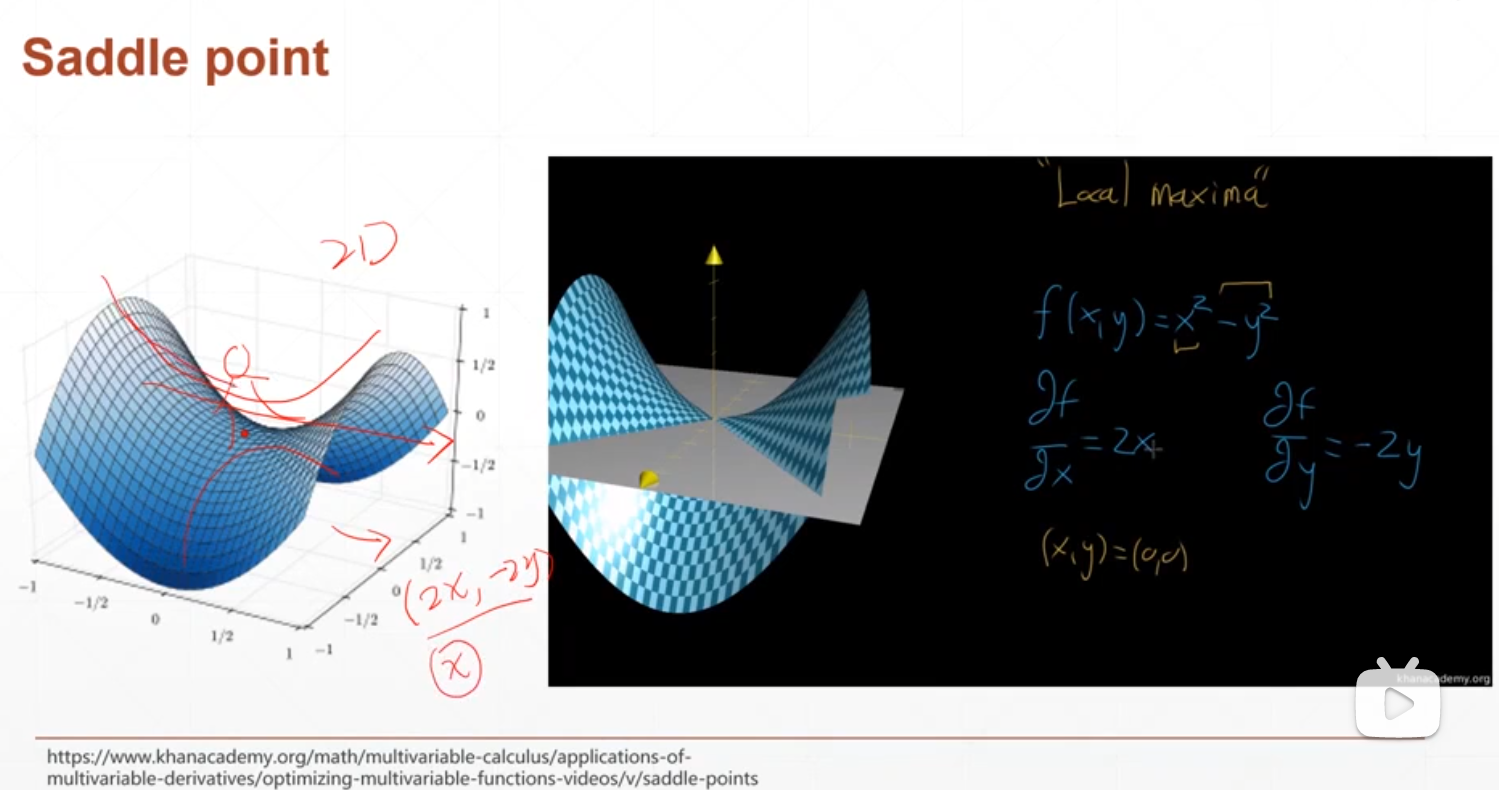 Saddle point
2D
1
1/2
0
-1/2
-1
1
1/2
0
-1/2
-1
-1
-1/2
0
1/2
1
(2x, -2y)
x
"Local maxima"
f(x,y)=x²-y²
∂f/∂x=2x
∂f/∂y=-2y
(x,y)=(0,0)
khanacademy.org
https://www.khanacademy.org/math/multivariable-calculus/applications-of-
multivariable-derivatives/optimizing-multivariable-functions-videos/v/saddle-points